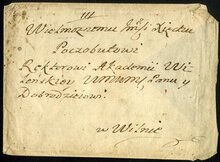 Wielmożnemu Imści Xiędzu
Poczobutowi
Rektorowi Akademii Wi
leńskiey Panu y
Dobrodzieiowi
w Wilnie